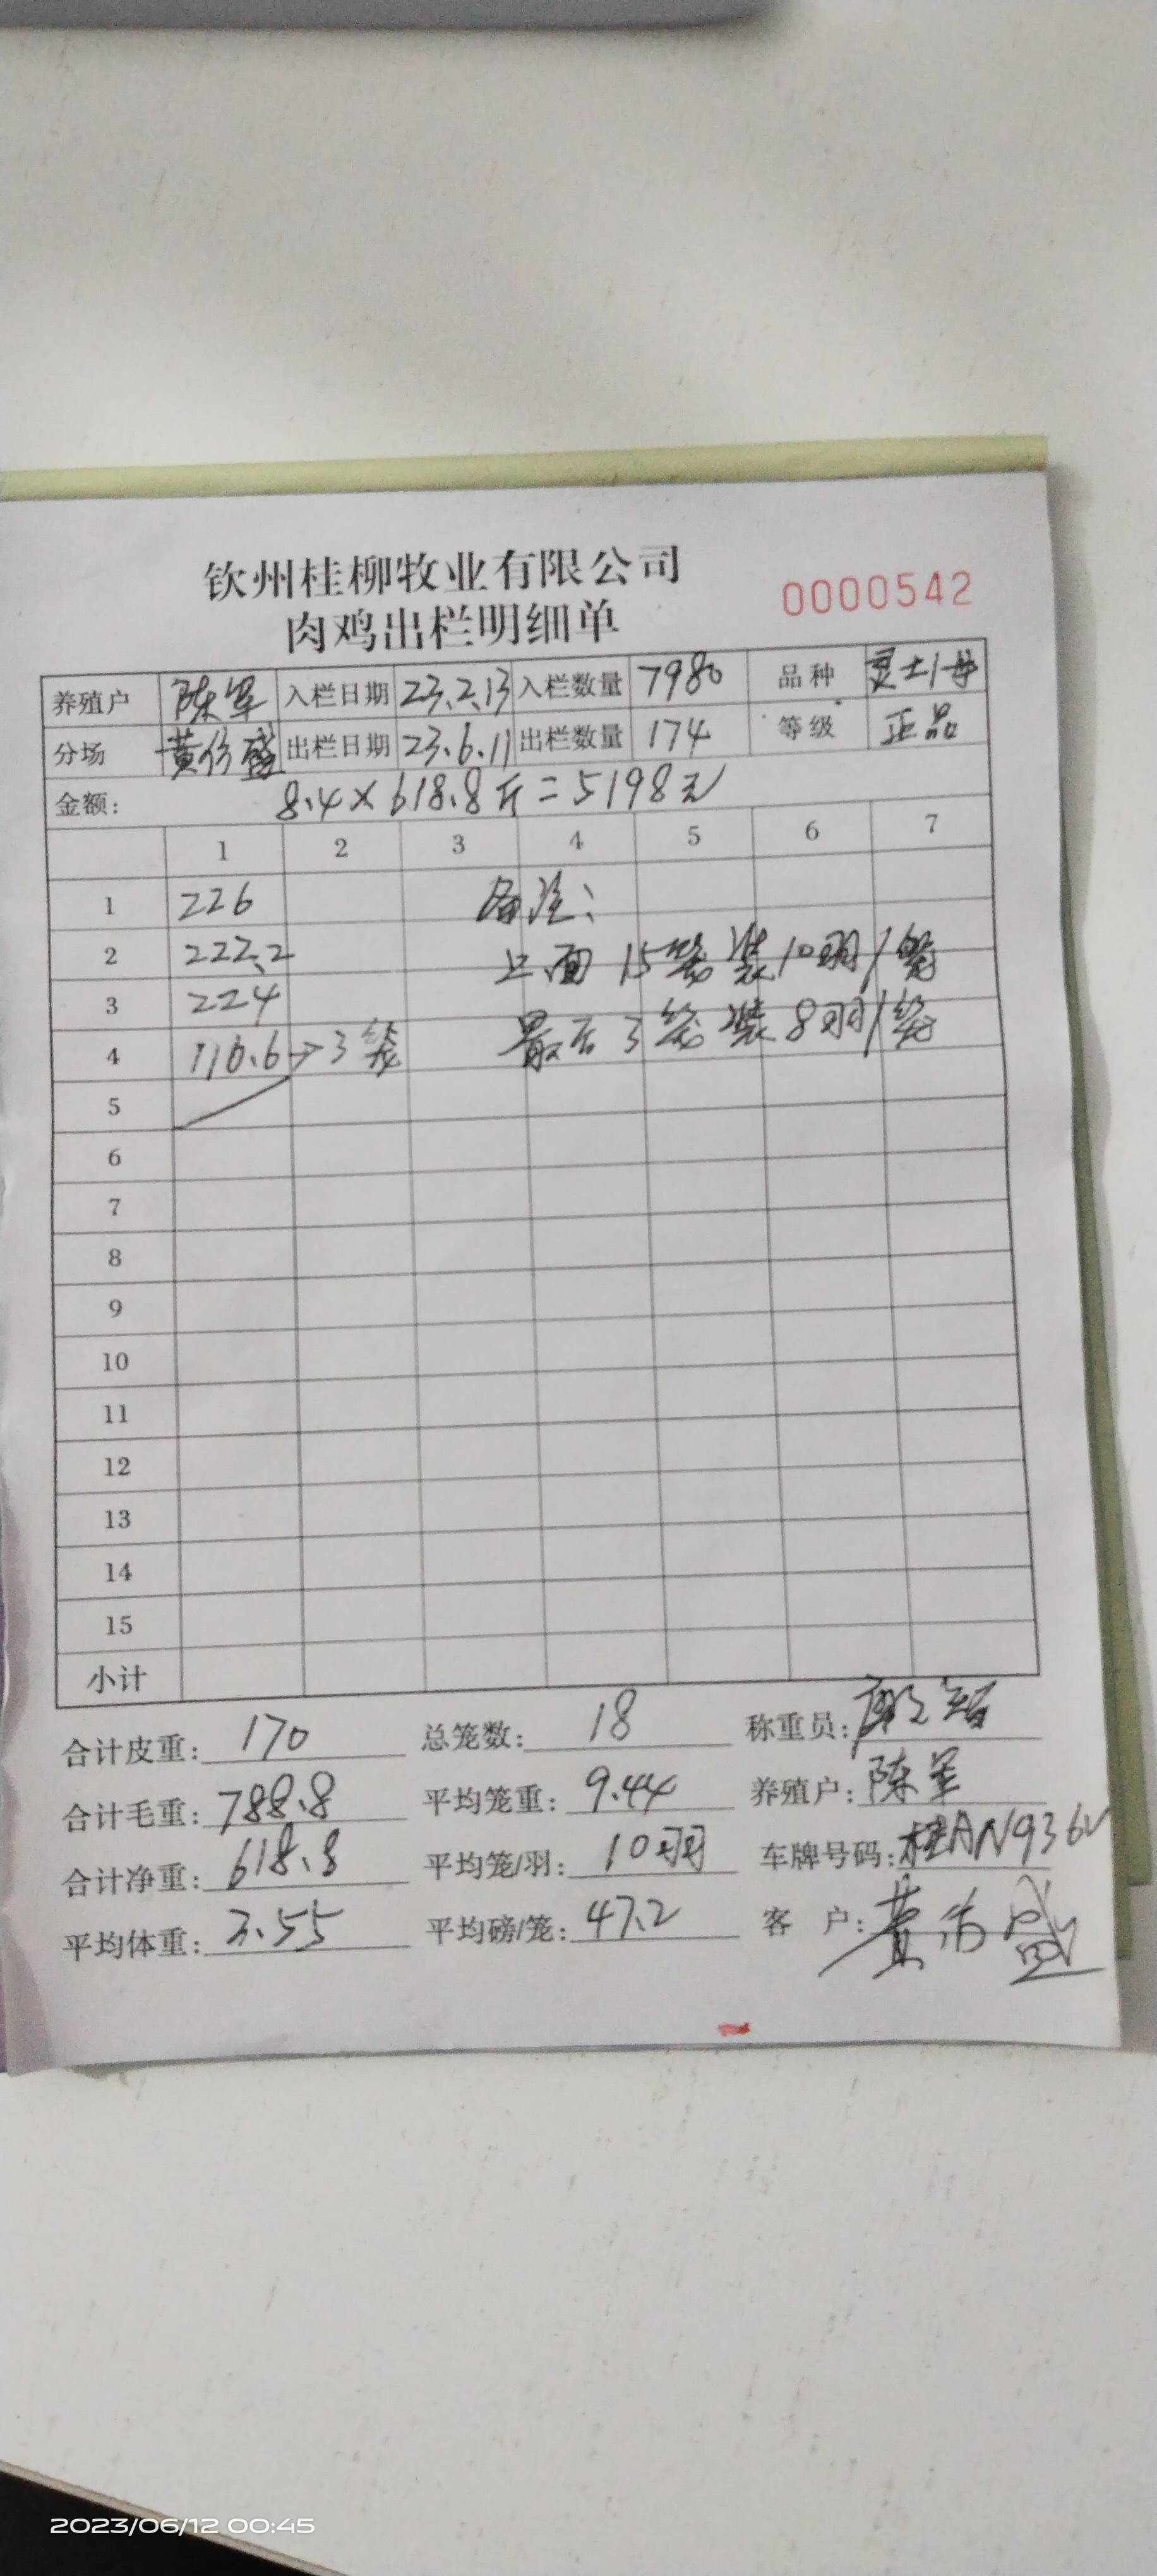 钦州桂柳牧业有限公司
肉鸡出栏明细单
0000542
养殖户 陈军 入栏日期 23.2.13 入栏数量 7980 品种 灵土1母
分场 黄 盛 出栏日期 23.6.11 出栏数量 174 等级 正品
金额: 8.4×618.8斤=5198元
1 2 3 4 5 6 7
1 226 备注:
2 222.2 上面15笼装10羽/笼
3 224
4 116.6→3笼 最后3笼装8羽/笼
5
6
7
8
9
10
11
12
13
14
15
小计
合计皮重: 170 总笼数: 18 称重员:
合计毛重: 788.8 平均笼重: 9.44 养殖户: 陈军
合计净重: 618.8 平均笼/羽: 10羽 车牌号码: 桂AN936V
平均体重: 3.55 平均磅/笼: 47.2 客 户: 黄 盛
2023/06/12 00:45